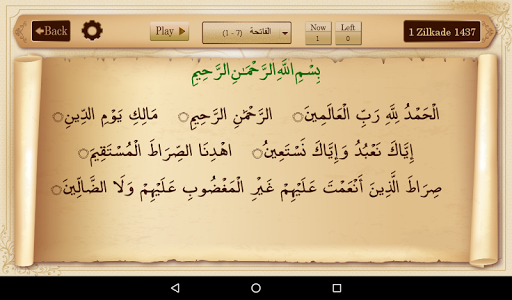 Back
Play
الفاتحة (1 - 7)
Now Left
1 0
1 Zilkade 1437
بِسْمِ اللَّهِ الرَّحْمَـٰنِ الرَّحِيمِ
الْحَمْدُ لِلَّهِ رَبِّ الْعَالَمِينَ الرَّحْمَٰنِ الرَّحِيمِ مَالِكِ يَوْمِ الدِّينِ
إِيَّاكَ نَعْبُدُ وَإِيَّاكَ نَسْتَعِينُ اهْدِنَا الصِّرَاطَ الْمُسْتَقِيمَ
صِرَاطَ الَّذِينَ أَنْعَمْتَ عَلَيْهِمْ غَيْرِ الْمَغْضُوبِ عَلَيْهِمْ وَلَا الضَّالِّينَ